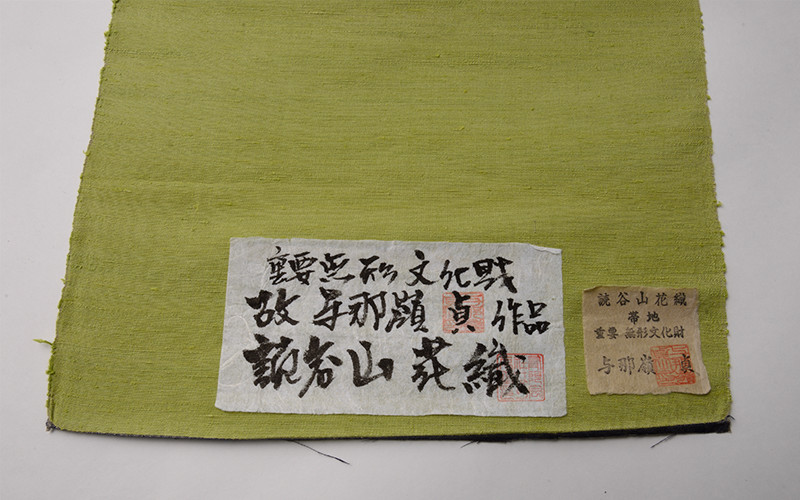 重要無形文化財
故与那嶺貞作品
読谷山花織
読谷山花織
帯地
重要無形文化財
与那嶺貞